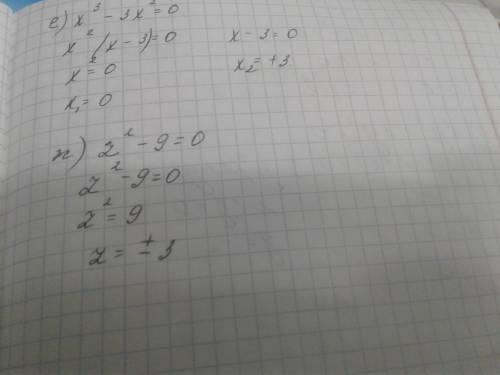 е) x³ - 3x² = 0
x² (x - 3) = 0
x² = 0
x₁ = 0
x - 3 = 0
x₂ = +3
ж) z² - 9 = 0
z² - 9 = 0
z² = 9
z = ± 3